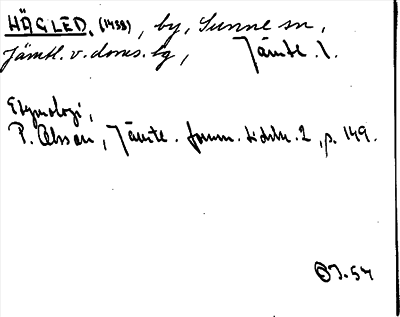 HÄGLED, (1438), by, Sunne sn,
Jämtl. v. doms. tg, Jämtl. l.
Etymologi,
P. Olsson, Jämtl. fornm. tidskr. 2, p. 149.
J. 54